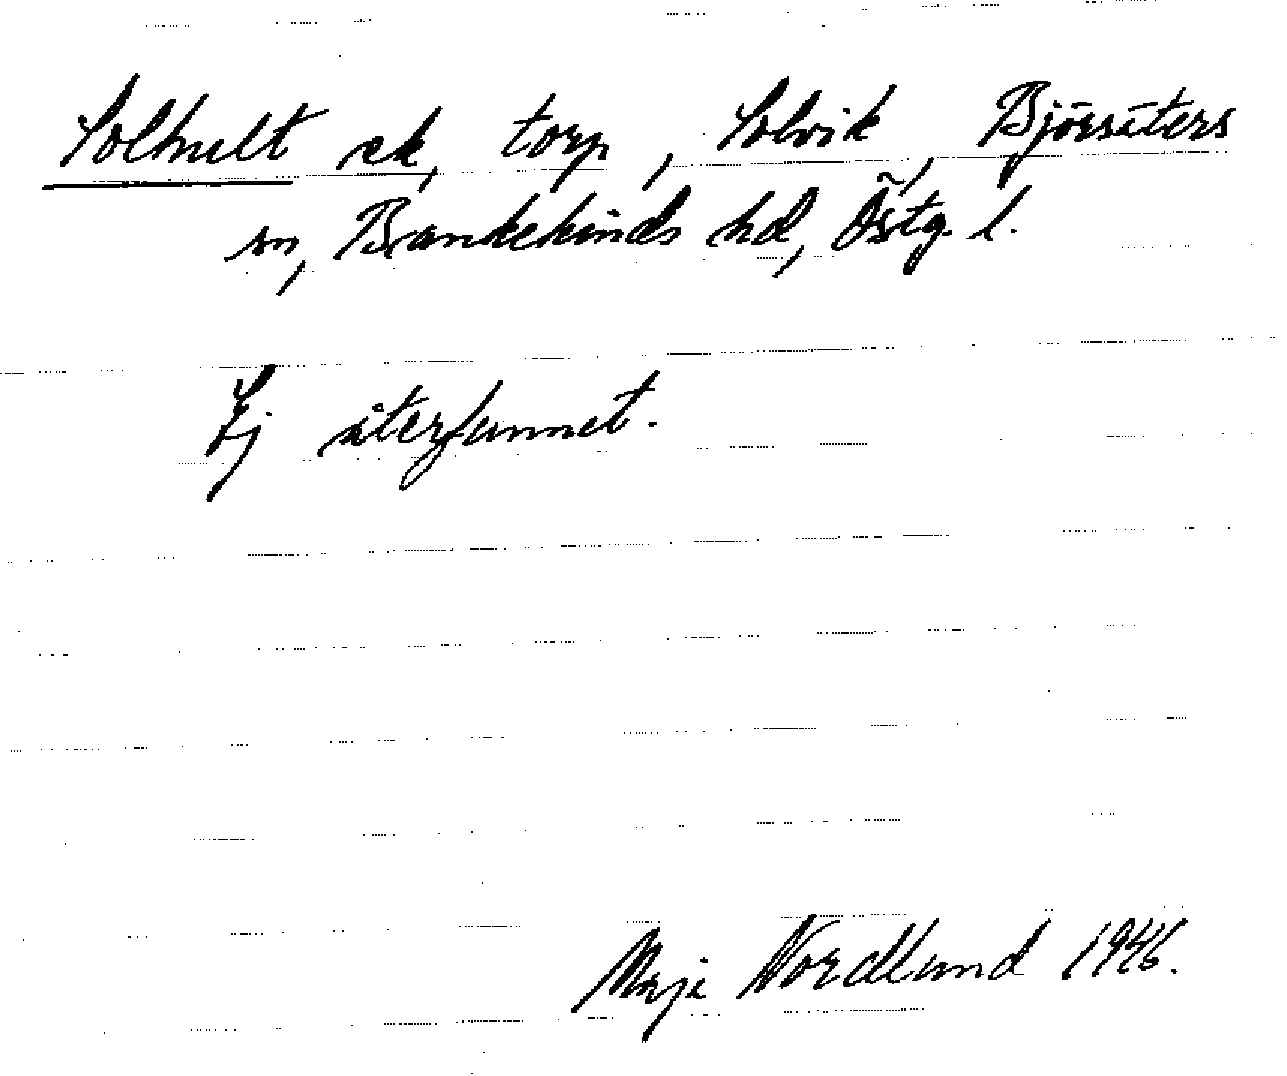 Solhult ek, torp, Solvik, Björsäters
sn, Bankekinds hd, Östg. l.
Ej återfunnet.
Maja Nordlund 1946.